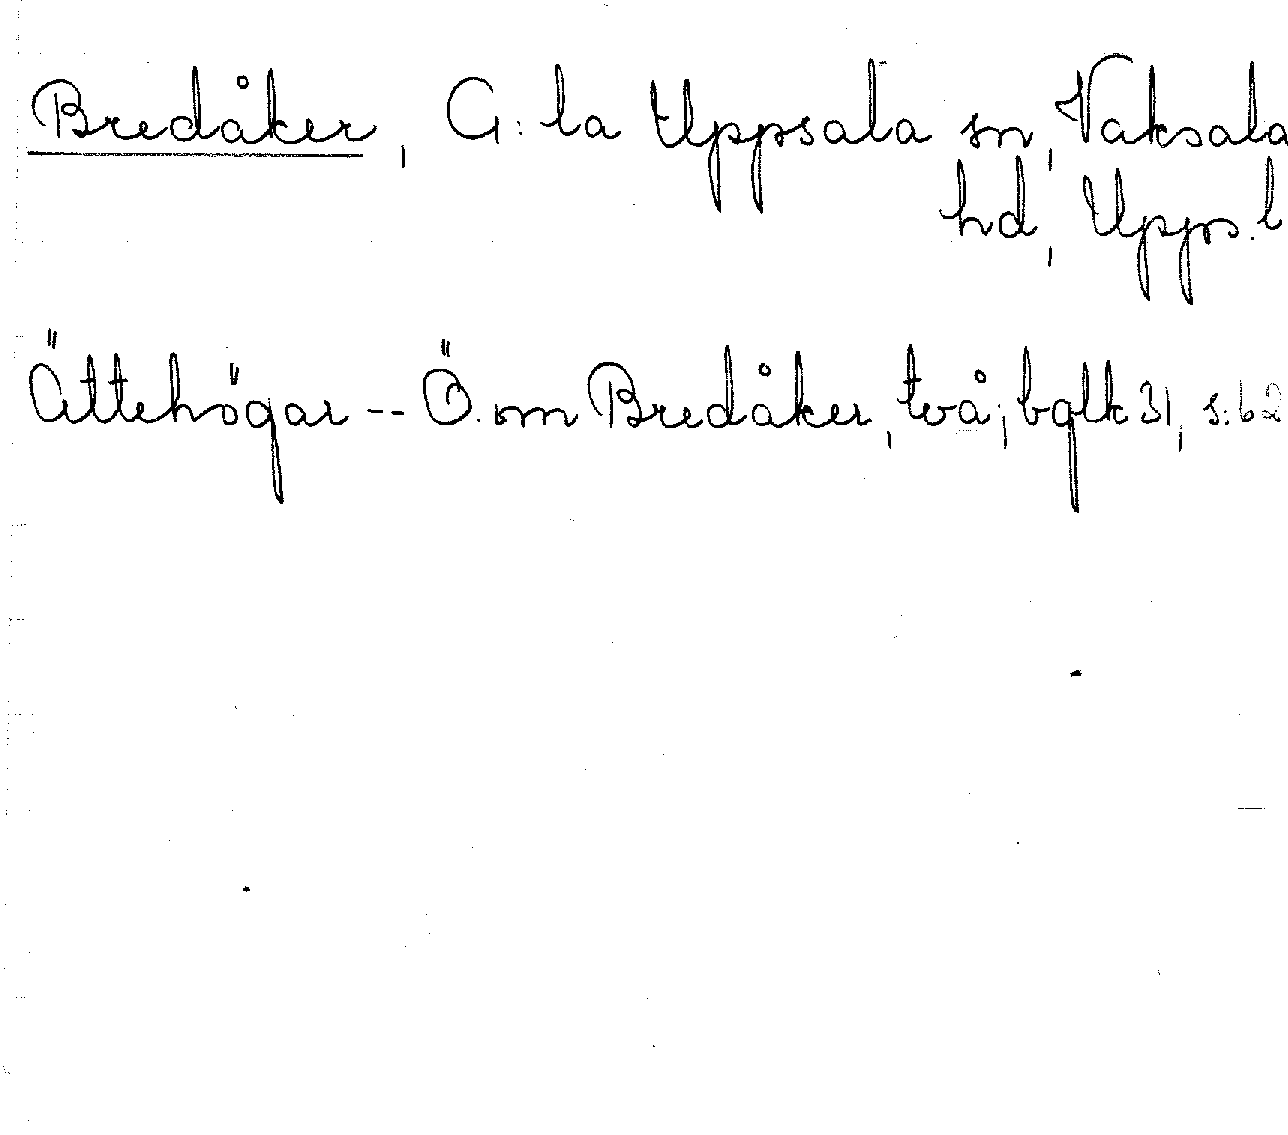 Bredåker, G:la Uppsala sn, Vaksala
hd, Upps. l
Ättehögar -- Ö. om Bredåker, två; bglk 31, s: 62